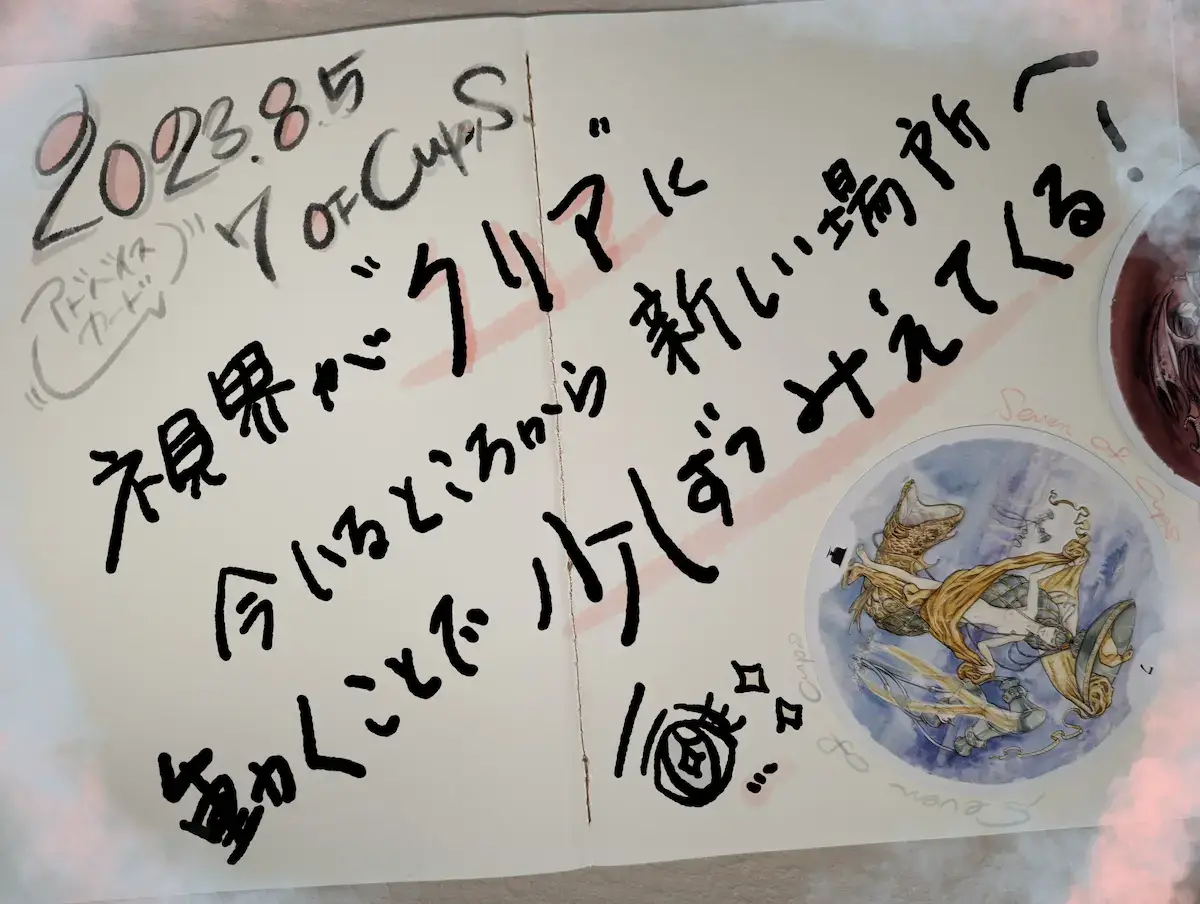 2023.8.5
7 OF CUPS.
アドバイス
カード
視界がクリアに
今いるところから新しい場所へ
動くことで少しずつみえてくる!
Seven of Cups
Seven of Cups